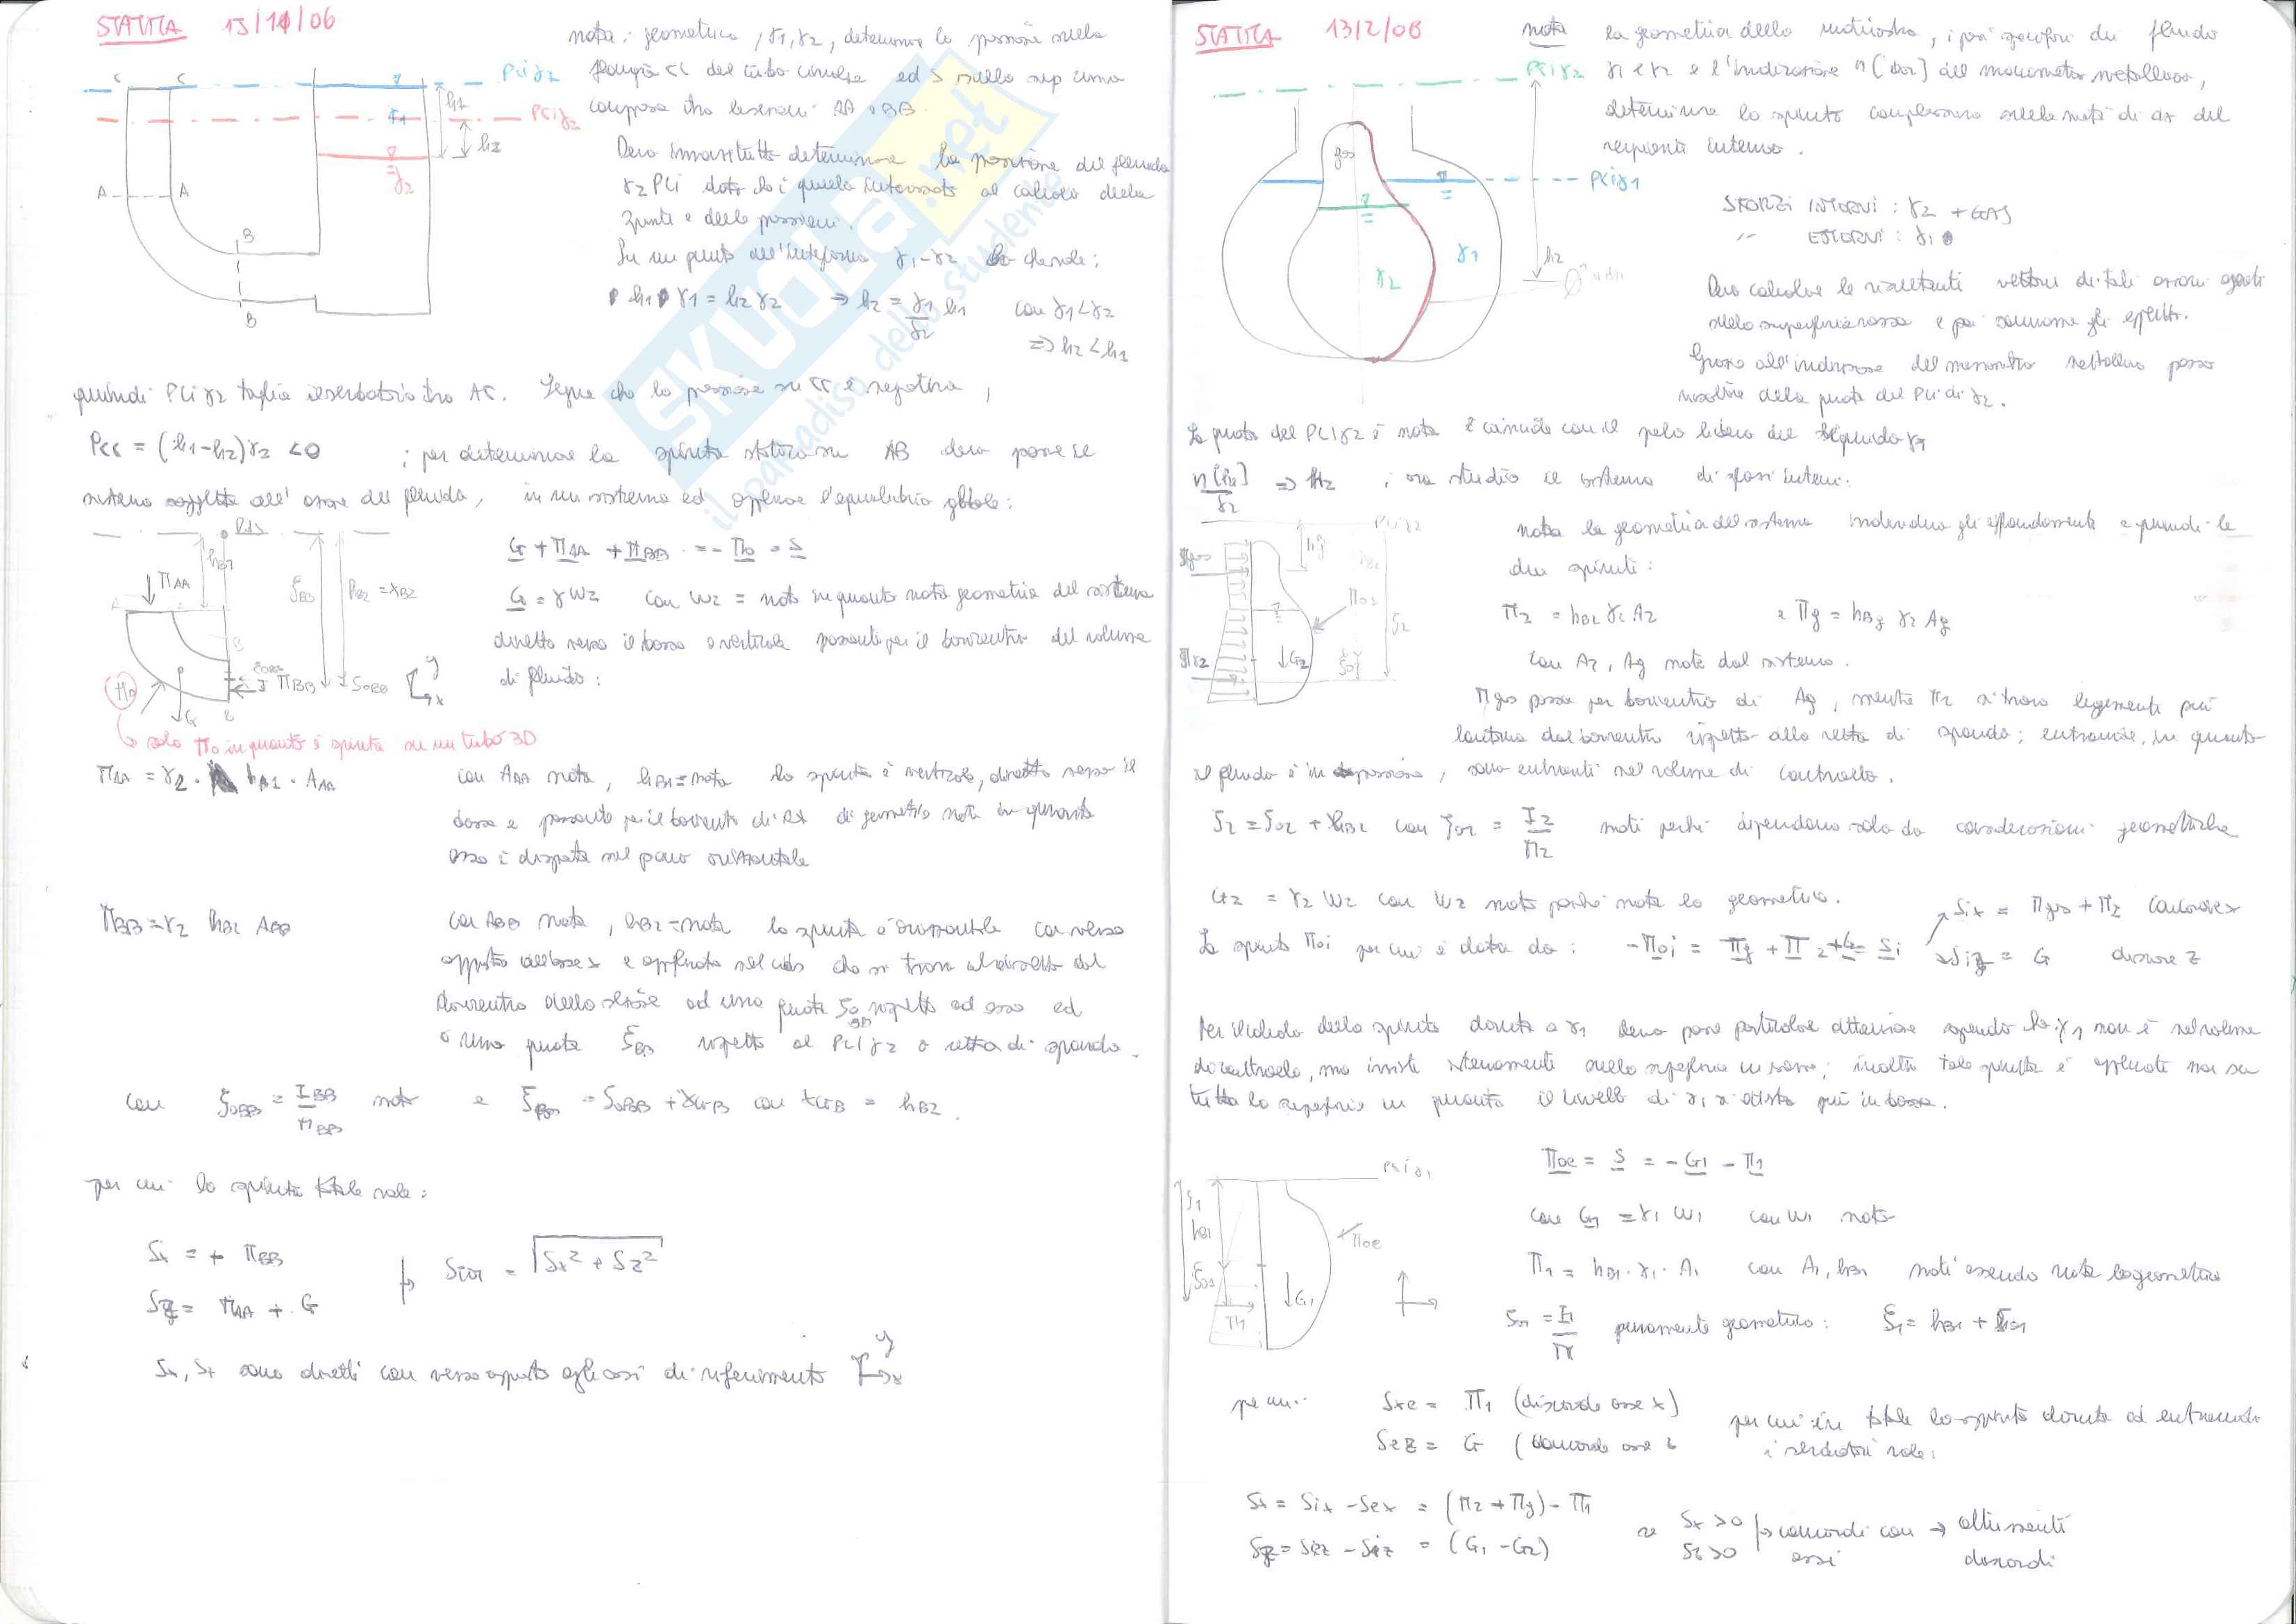 STATICA 15/11/06
nota: geometrica, γ1, γ2, determinare la pressione sulla
flangia CC del tubo circolare ed S sulla sup curva
compresa tra le sezioni AA e BB.
Devo innanzitutto determinare la posizione del fluido
γ2 PCI dato che è quello interessato al calcolo della
spinta e delle pressioni.
In un punto dell'interfaccia γ1-γ2 ho che vale:
h1 γ1 = h2 γ2 => h2 = γ1/γ2 h1 con γ1<γ2
=> h2 < h1
PCIγ2
PCIγ2
C C
γ1
γ2
h1
h2
A A
B
B
quindi PCIγ2 taglia il serbatoio tra AC. Segue che la pressione su CC è negativa,
PCC = (h1-h2)γ2 <0 ; per determinare la spinta statica su AB devo porre il
sistema soggetto all'azione del fluido, in un sistema ed applicare l'equilibrio globale:
G + ΠAA + ΠBB = -Π0 = S
G = γ W2 con W2 = noto in quanto nota geometria del sistema
diretto verso il basso e verticale passante per il baricentro del volume
di fluido:
hB1
ΠAA
ξBB
hB2 = xB2
A
B
ΠBB
ξ0BB
Π0
G
B
y
x
solo Π0 in quanto è spinta su un tubo 3D
ΠAA = γ2 · hB1 · AAA con AAA nota, hB1=nota la spinta è verticale, diretta verso il
basso e passante per il baricentro di AA di geometria nota in quanto
esso è disposto sul piano orizzontale
ΠBB = γ2 hB2 ABB con ABB nota, hB2=nota la spinta è orizzontale con verso
opposto all'asse x e applicata nel che si trova al disotto del
baricentro della sezione ad una quota ξ0BB rispetto ad esso ed
a una quota ξBB rispetto al PCIγ2 o retta di sponda.
con ξ0BB = IBB/MBB noto e ξBB = ξ0BB + xGB con xGB = hB2.
per cui la spinta totale vale:
Sx = + ΠBB
Sz = ΠAA + G
STOT = √(Sx² + Sz²)
Sx, Sz sono diretti con verso opposto agli assi di riferimento y x
STATICA 13/2/08
nota la geometria della , i pesi specifici dei fluido
γ1 e γ2 e l'indicazione n [bar] del manometro metallico,
determinare la spinta complessiva sulla metà di dx del
recipiente interno.
PCIγ2
gas
PCIγ1
γ1
γ2
h2
n bar
SFORZI INTERNI: γ2 + GAS
" ESTERNI: γ1
Devo calcolare le risultanti vettori di tali azioni agenti
sulla superficie rossa e poi sommarne gli effetti.
Grazie all'indicazione del manometro metallico posso
risalire della quota del PCI di γ2.
La quota del PCIγ2 è nota e coincide con il pelo libero del liquido γ1
n[bar]/γ2 => h2 ; ora studio il sistema di sforzi interni:
PCIγ2
hBg
hB2
Πgas
Π0i
ξ2
Πγ2
G2
ξ02
nota la geometria del sistema individuo gli affondamenti e quindi le
due spinte:
Π2 = hB2 γ2 A2 e Πg = hBg γ2 Ag
con A2, Ag note dal sistema.
Πgas passa per baricentro di Ag, mentre Π2 si trova leggermente più
lontana dal baricentro rispetto alla retta di sponda; entrambe, in quanto
il fluido è in pressione, sono entranti nel volume di controllo.
ξ2 = ξ02 + hB2 con ξ02 = I2/M2 noti perché dipendono solo da considerazioni geometriche
G2 = γ2 W2 con W2 noto perché nota la geometria.
La spinta Π0i per cui è data da: -Π0i = Πg + Π2 + G = Si
Six = Πgas + Π2 concorde x
Siz = G discorde z
Per il calcolo della spinta dovuta a γ1 devo porre particolare attenzione sapendo che γ1 non è nel volume
di controllo, ma insiste esternamente sulla superficie in esame; inoltre tale spinta è applicata non su
tutta la superficie in quanto il livello di γ1 si attesta più in basso.
PCIγ1
ξ1
hB1
ξ01
Π1
G1
Π0e
Π0e = S = -G1 - Π1
con G1 = γ1 W1 con W1 noto
Π1 = hB1 · γ1 · A1 con A1, hB1 noti essendo nota la geometria
ξ01 = I1/M puramente geometrico: ξ1 = hB1 + ξ01
per cui: Sxe = Π1 (discorde asse x)
Sez = G (concorde asse z
per cui in totale la spinta dovuta ad entrambi
i serbatoi vale:
Sx = Six - Sex = (Π2 + Πg) - Π1
Sz = Sez - Siz = (G1 - G2)
se Sx >0 Sz >0 concordi con assi → altrimenti discordi
SKUOLA.net
il paradiso dello studente